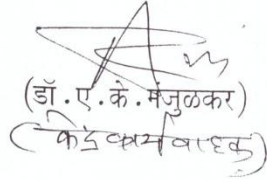 (डॉ.ए.के.मंजुळकर)
(केंद्रकार्यवाहक)